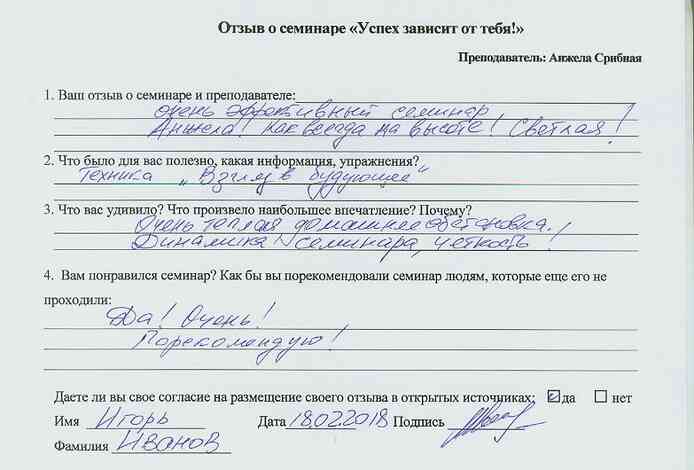 Отзыв о семинаре «Успех зависит от тебя!»
Преподаватель: Анжела Срибная
1. Ваш отзыв о семинаре и преподавателе:
очень эффективный семинар,
Анжела! Как всегда на высоте! Светлая!
2. Что было для вас полезно, какая информация, упражнения?
Техника „Взгляд в будующее"
3. Что вас удивило? Что произвело наибольшее впечатление? Почему?
Очень теплая домашнее обстановка.
Динамика семинара, четкость!
4. Вам понравился семинар? Как бы вы порекомендовали семинар людям, которые еще его не
проходили:
Да! Очень!
Порекомендую!
Даете ли вы свое согласие на размещение своего отзыва в открытых источниках: да нет
Имя Игорь Дата 18.02.2018 Подпись
Фамилия Иванов